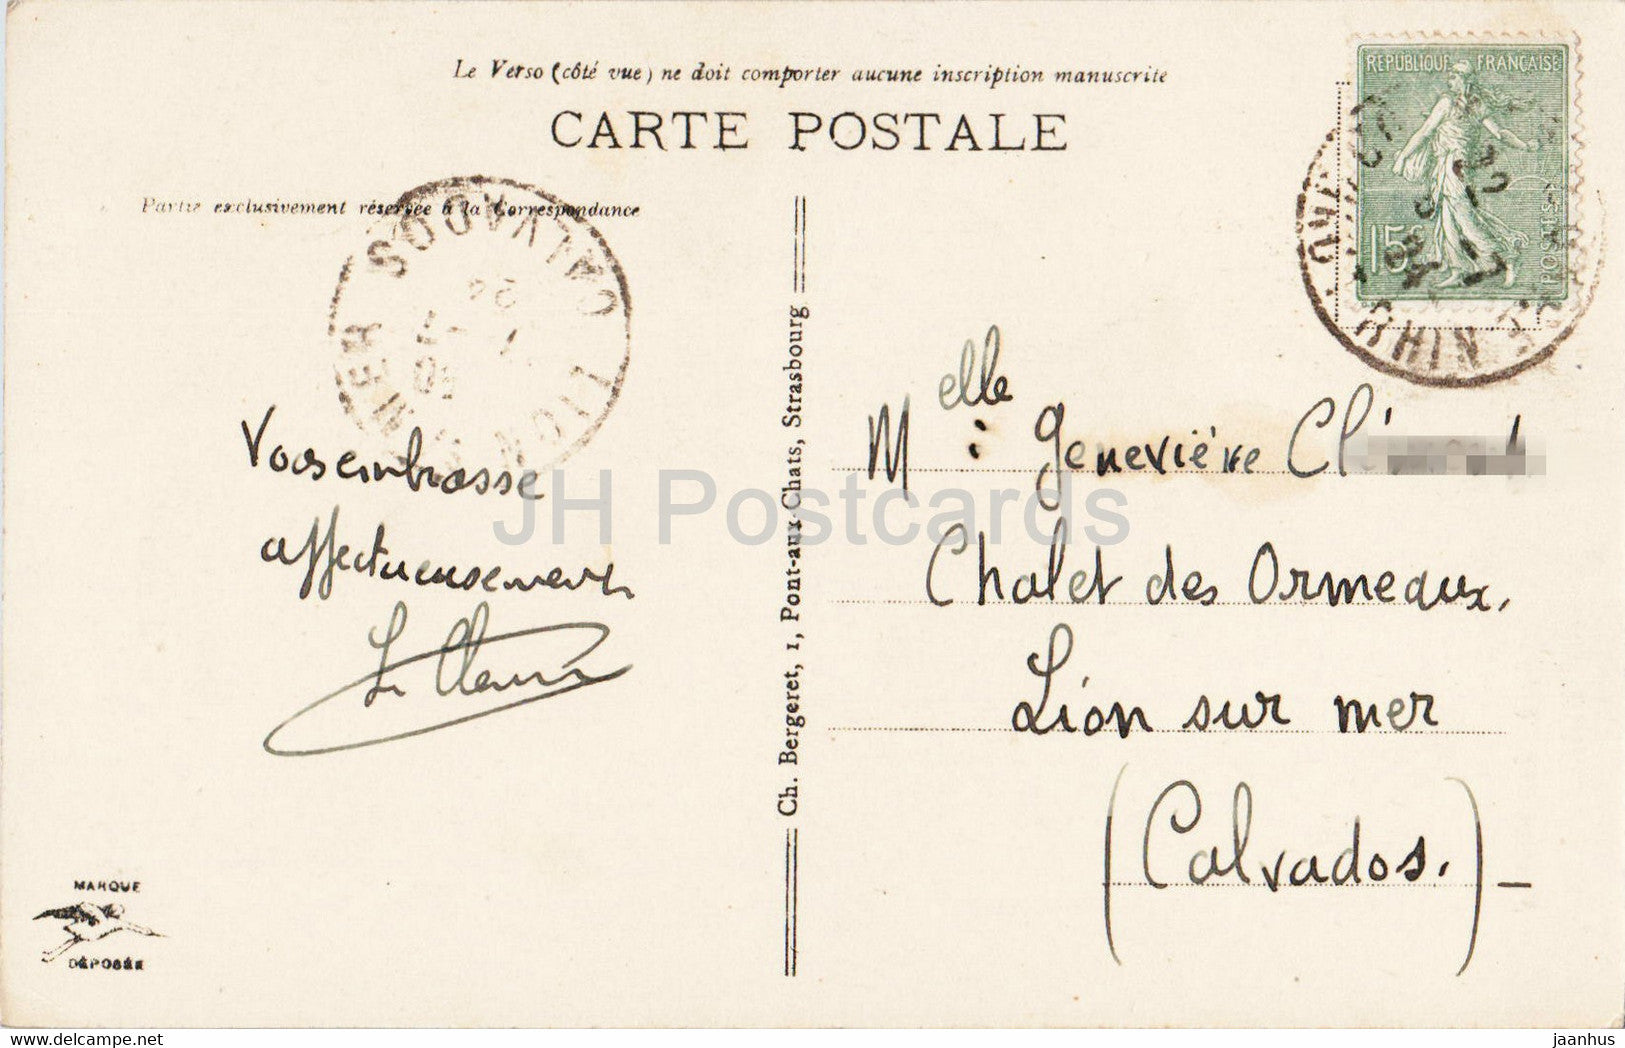 Le Verso (côté vue) ne doit comporter aucune inscription manuscrite
CARTE POSTALE
Partie exclusivement réservée à la Correspondance
REPUBLIQUE FRANÇAISE
15c
POSTES
LION
MER
CALVADOS
Vous embrasse
affectueusement
Melle Geneviève
Chalet des Ormeaux,
Lion sur mer
(Calvados.)
Ch. Bergeret, 1, Pont-aux-Chats, Strasbourg
MARQUE
DÉPOSÉE
JH Postcards
jaanhus